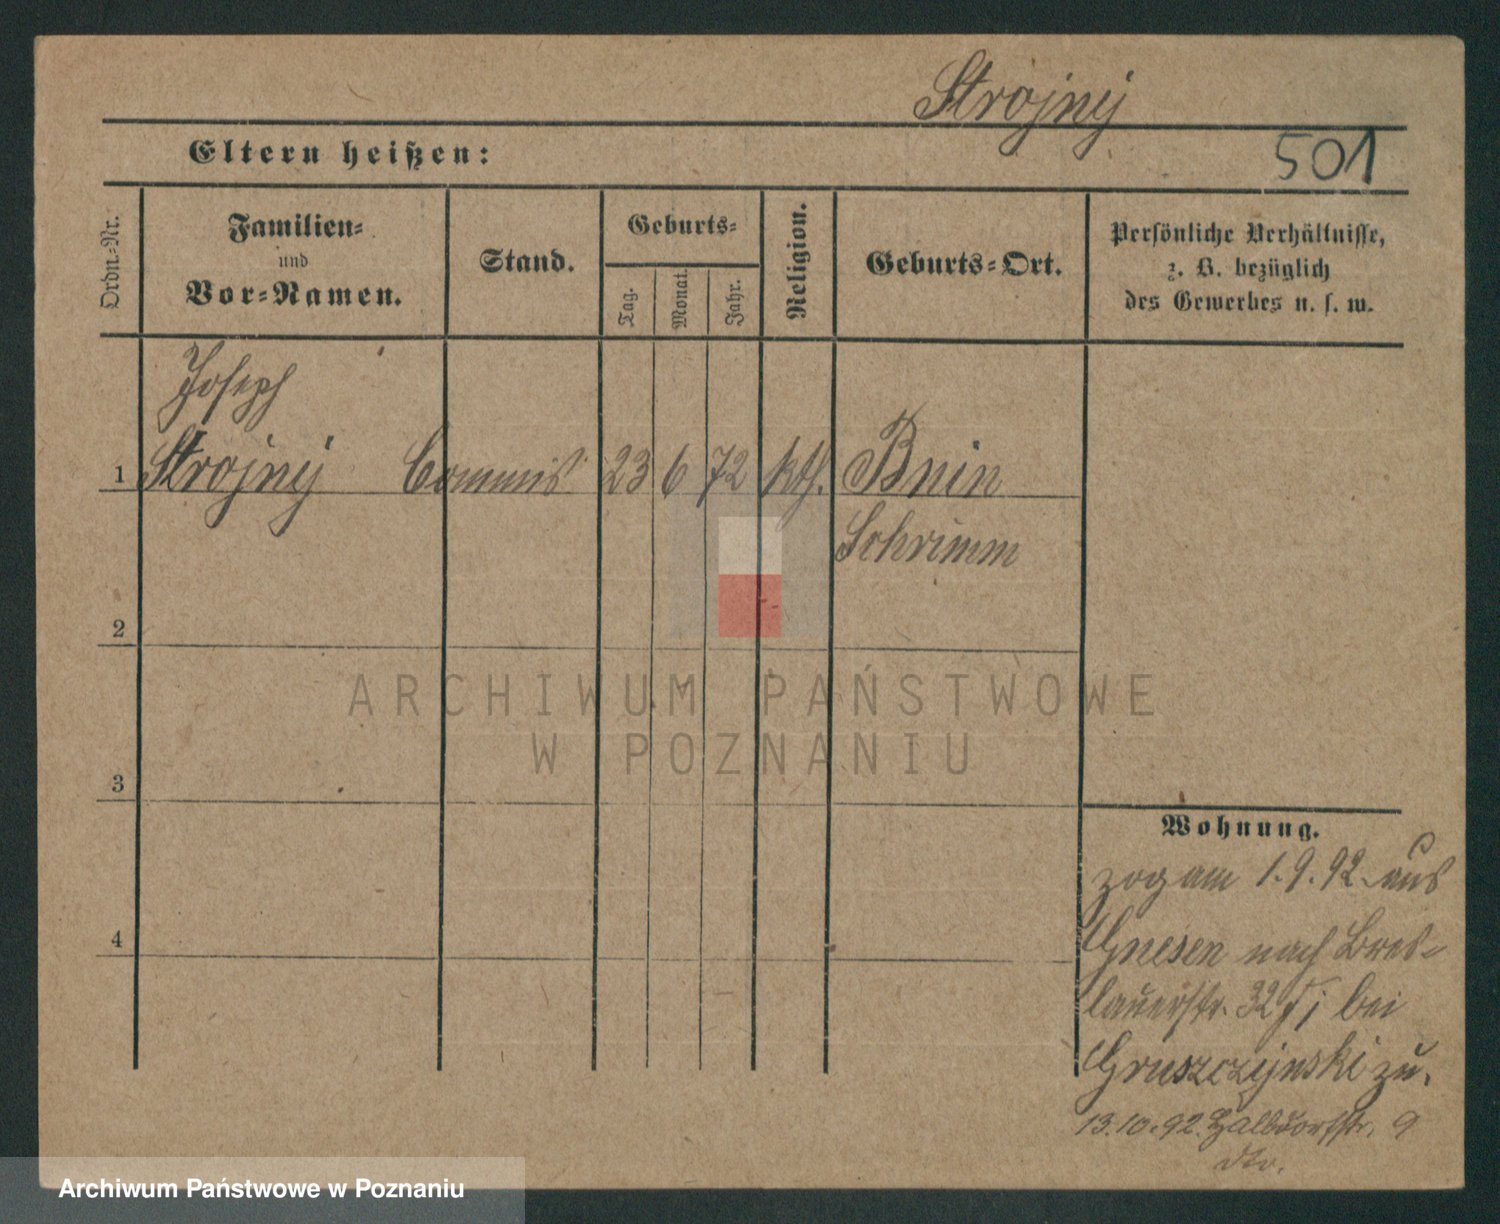 Strojnÿ
Eltern heißen:
501
Ordn.-Nr.
Familien-
und
Vor-Namen.
Stand.
Geburts-
Tag.
Monat.
Jahr.
Religion.
Geburts-Ort.
Persönliche Verhältnisse,
z. B. bezüglich
des Gewerbes u. s. w.
Joseph
1 Strojnÿ Commis 23 6 72 kth. Bnin
Schrimm
2
3
4
Wohnung.
zog am 1.9.92. aus
Gnesen nach Bres-
lauerstr. 32 bei
Gruszczÿnski zu.
13.10.92. Halbdorfstr. 9
dto.
ARCHIWUM PAŃSTWOWE
W POZNANIU
Archiwum Państwowe w Poznaniu